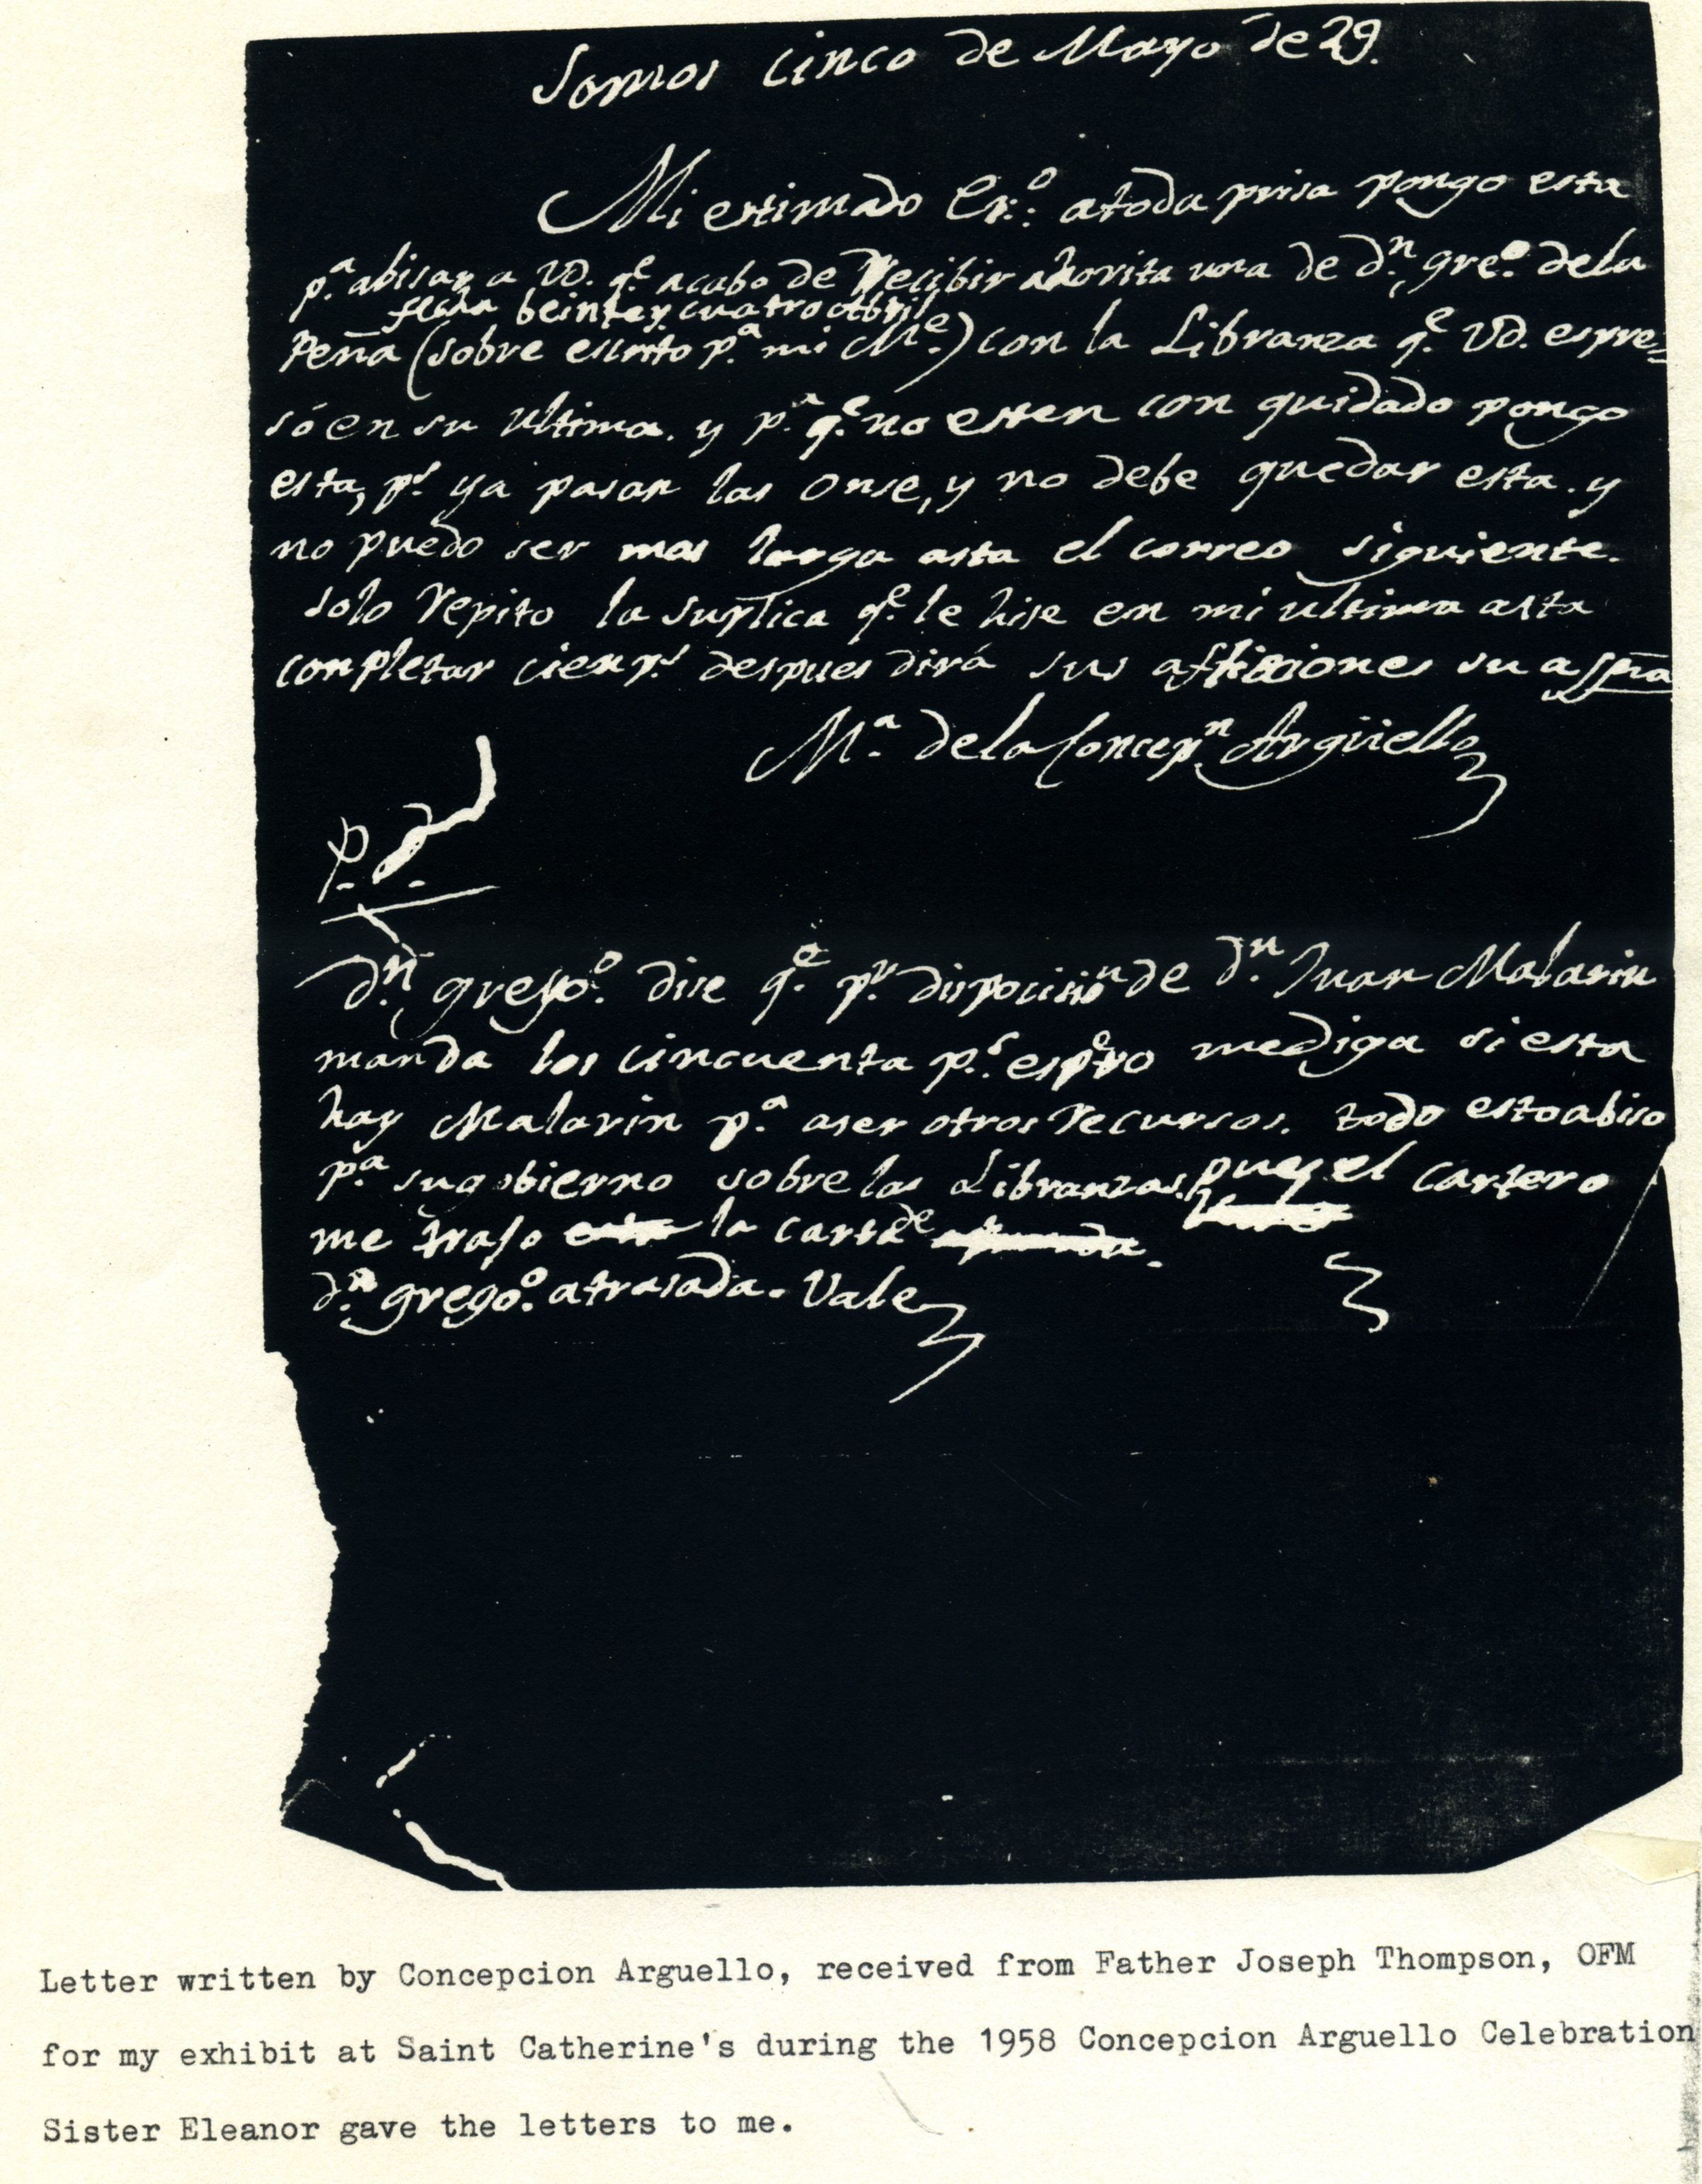 Somos cinco de Mayo de 29.
Mi estimado atoda prisa pongo esta
p.ª abisar a VD. q.e acabo de Recibir ahorita una de d.n gre.o dela
fecha beinte y cuatro Abril
Peña (sobre escrito p.a mi M.e) con la Libranza q.e VD. espre-
só en su ultima. y p.a q.e no esten con quidado pongo
esta, p.s ya pasan las Onse, y no debe quedar esta. y
no puedo ser mas larga asta el correo siguiente.
solo Repito la suplica q.e le hise en mi ultima asta
conpletar cien p.s despues dirá sus aflixiones su
M.a dela Concep.n Argüello
P. d.
d.n grego.o dise q.e p.r disposision de d.n Juan Malarin
manda los cincuenta p.s espero mediga si esta
hay Malarin p.a aser otros Recursos. todo estoabiso
p.a sugobierno sobre las Libranzas. pues el cartero
me trajo la carta de
d.n grego.o atrasada. Vale
Letter written by Concepcion Arguello, received from Father Joseph Thompson, OFM
for my exhibit at Saint Catherine's during the 1958 Concepcion Arguello Celebration
Sister Eleanor gave the letters to me.